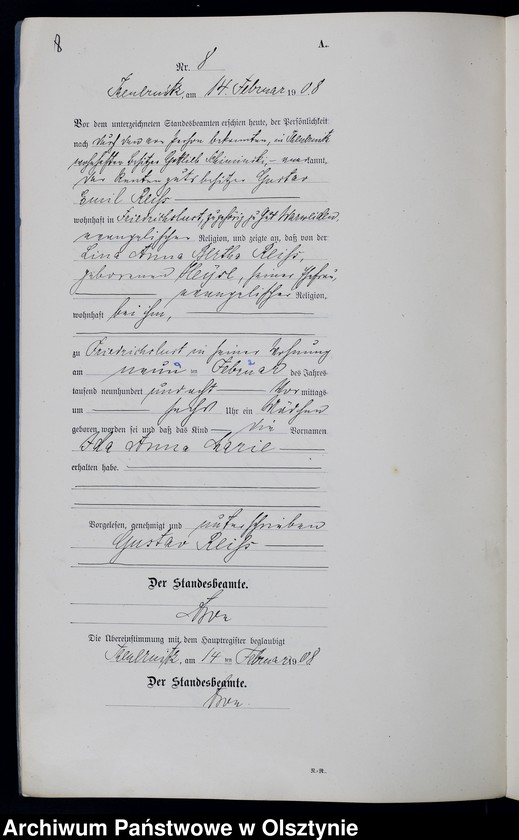 8
A.
Nr. 8
am 14. Februar 1908
Vor dem unterzeichneten Standesbeamten erschien heute, der Persönlichkeit
nach durch den von Person bekannten, in
Besitzer Gottlieb anerkannt,
der Rentengutsbesitzer Gustav
Emil Reiss
wohnhaft in Friedrichslust, zugehörig zu Gut
evangelischer Religion, und zeigte an, daß von der
Lina Anna Bertha Reiss,
geborenen seiner Ehefrau,
evangelischer Religion,
wohnhaft bei ihm,
zu Friedrichslust in seiner Wohnung
am neun 9 ten Februar 2 des Jahres
tausend neunhundert und acht Vor mittags
um sechs Uhr ein Mädchen
geboren worden sei und daß das Kind die Vornamen
Ida Anna Marie
erhalten habe.
Vorgelesen, genehmigt und unterschrieben
Gustav Reiss
Der Standesbeamte.
Die Übereinstimmung mit dem Hauptregister beglaubigt
am 14 ten Februar 1908
Der Standesbeamte.
K.-R.
Archiwum Państwowe w Olsztynie